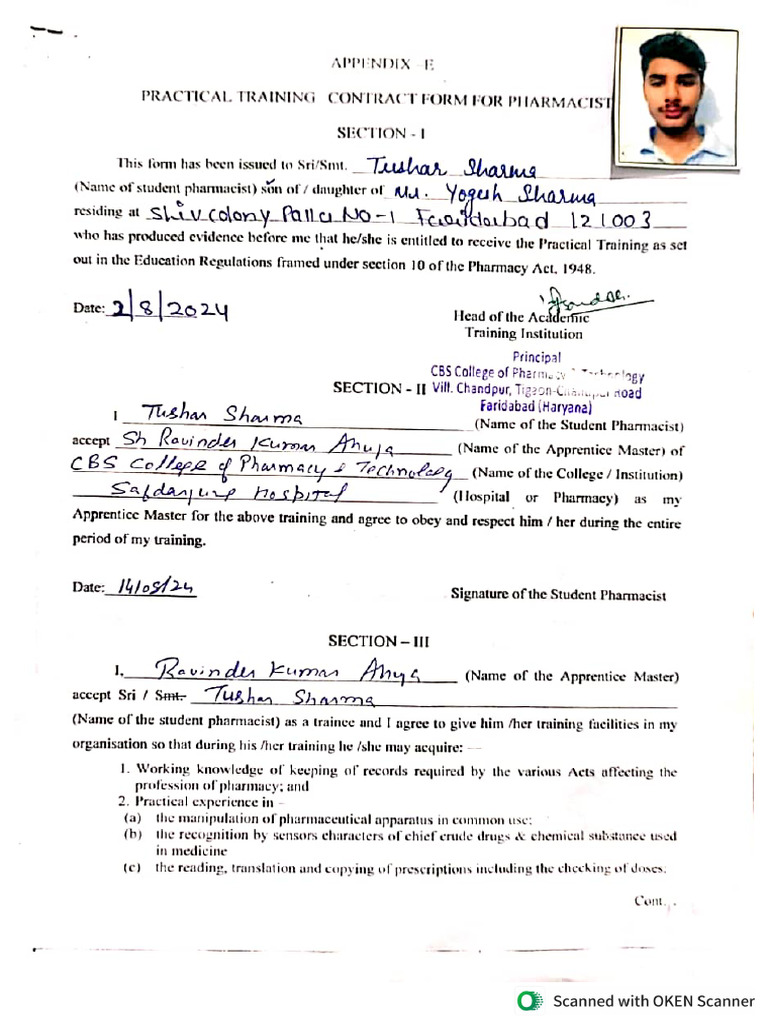 APPENDIX -E
PRACTICAL TRAINING CONTRACT FORM FOR PHARMACIST
SECTION - I
This form has been issued to Sri/Smt. Tushar Sharma
(Name of student pharmacist) son of / daughter of Mr. Yogesh Sharma
residing at Shiv colony Palla NO-1 Faridabad 121003
who has produced evidence before me that he/she is entitled to receive the Practical Training as set
out in the Education Regulations framed under section 10 of the Pharmacy Act, 1948.
Date: 2/8/2024
Head of the Academic
Training Institution
Principal
CBS College of Pharmacy & Technology
SECTION - II Vill. Chandpur, Tigaon-Chandpur Road
Faridabad (Haryana)
I Tushar Sharma (Name of the Student Pharmacist)
accept Sh Ravinder Kumar Ahuja (Name of the Apprentice Master) of
CBS College of Pharmacy & Technology (Name of the College / Institution)
Safdarjung Hospital (Hospital or Pharmacy) as my
Apprentice Master for the above training and agree to obey and respect him / her during the entire
period of my training.
Date: 14/08/24 Signature of the Student Pharmacist
SECTION – III
I, Ravinder Kumar Ahuja (Name of the Apprentice Master)
accept Sri / Smt. Tushar Sharma
(Name of the student pharmacist) as a trainee and I agree to give him /her training facilities in my
organisation so that during his /her training he /she may acquire: —
1. Working knowledge of keeping of records required by the various Acts affecting the
profession of pharmacy; and
2. Practical experience in –
(a) the manipulation of pharmaceutical apparatus in common use;
(b) the recognition by sensors characters of chief crude drugs & chemical substance used
in medicine
(c) the reading, translation and copying of prescriptions including the checking of doses;
Cont..
Scanned with OKEN Scanner